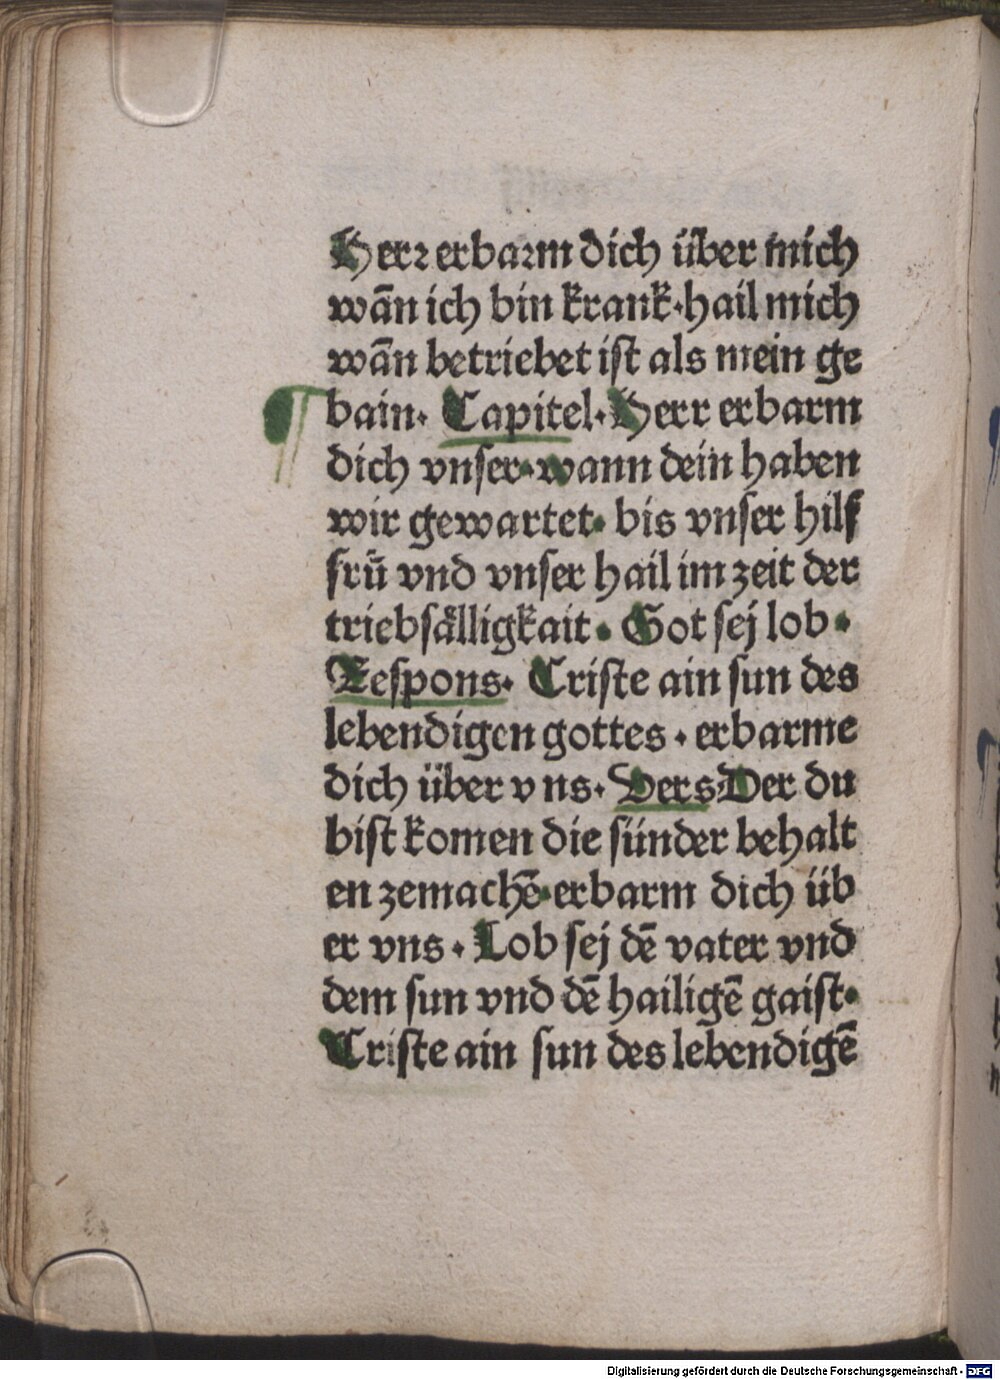 Herꝛ erbaꝛm dich über mich
wān ich bin krank·hail mich
wān betriebet iſt als mein ge
bain· Capitel·Herr erbarm
dich vnſer·wann dein haben
wir gewartet· bis vnſer hilf
frü vnd vnſer hail im zeit der
triebſälligkait· Got ſej lob·
Reſpons· Criſte ain ſun des
lebendigen gottes · erbarme
dich über vns· Vers Der du
biſt komen die ſünder behalt
en zemachē·erbarm dich üb
er vns · Lob ſej dē vater vnd
dem ſun vnd dē hailigē gaiſt·
Criſte ain ſun des lebendigē
Digitalisierung gefördert durch die Deutsche Forschungsgemeinschaft - DFG